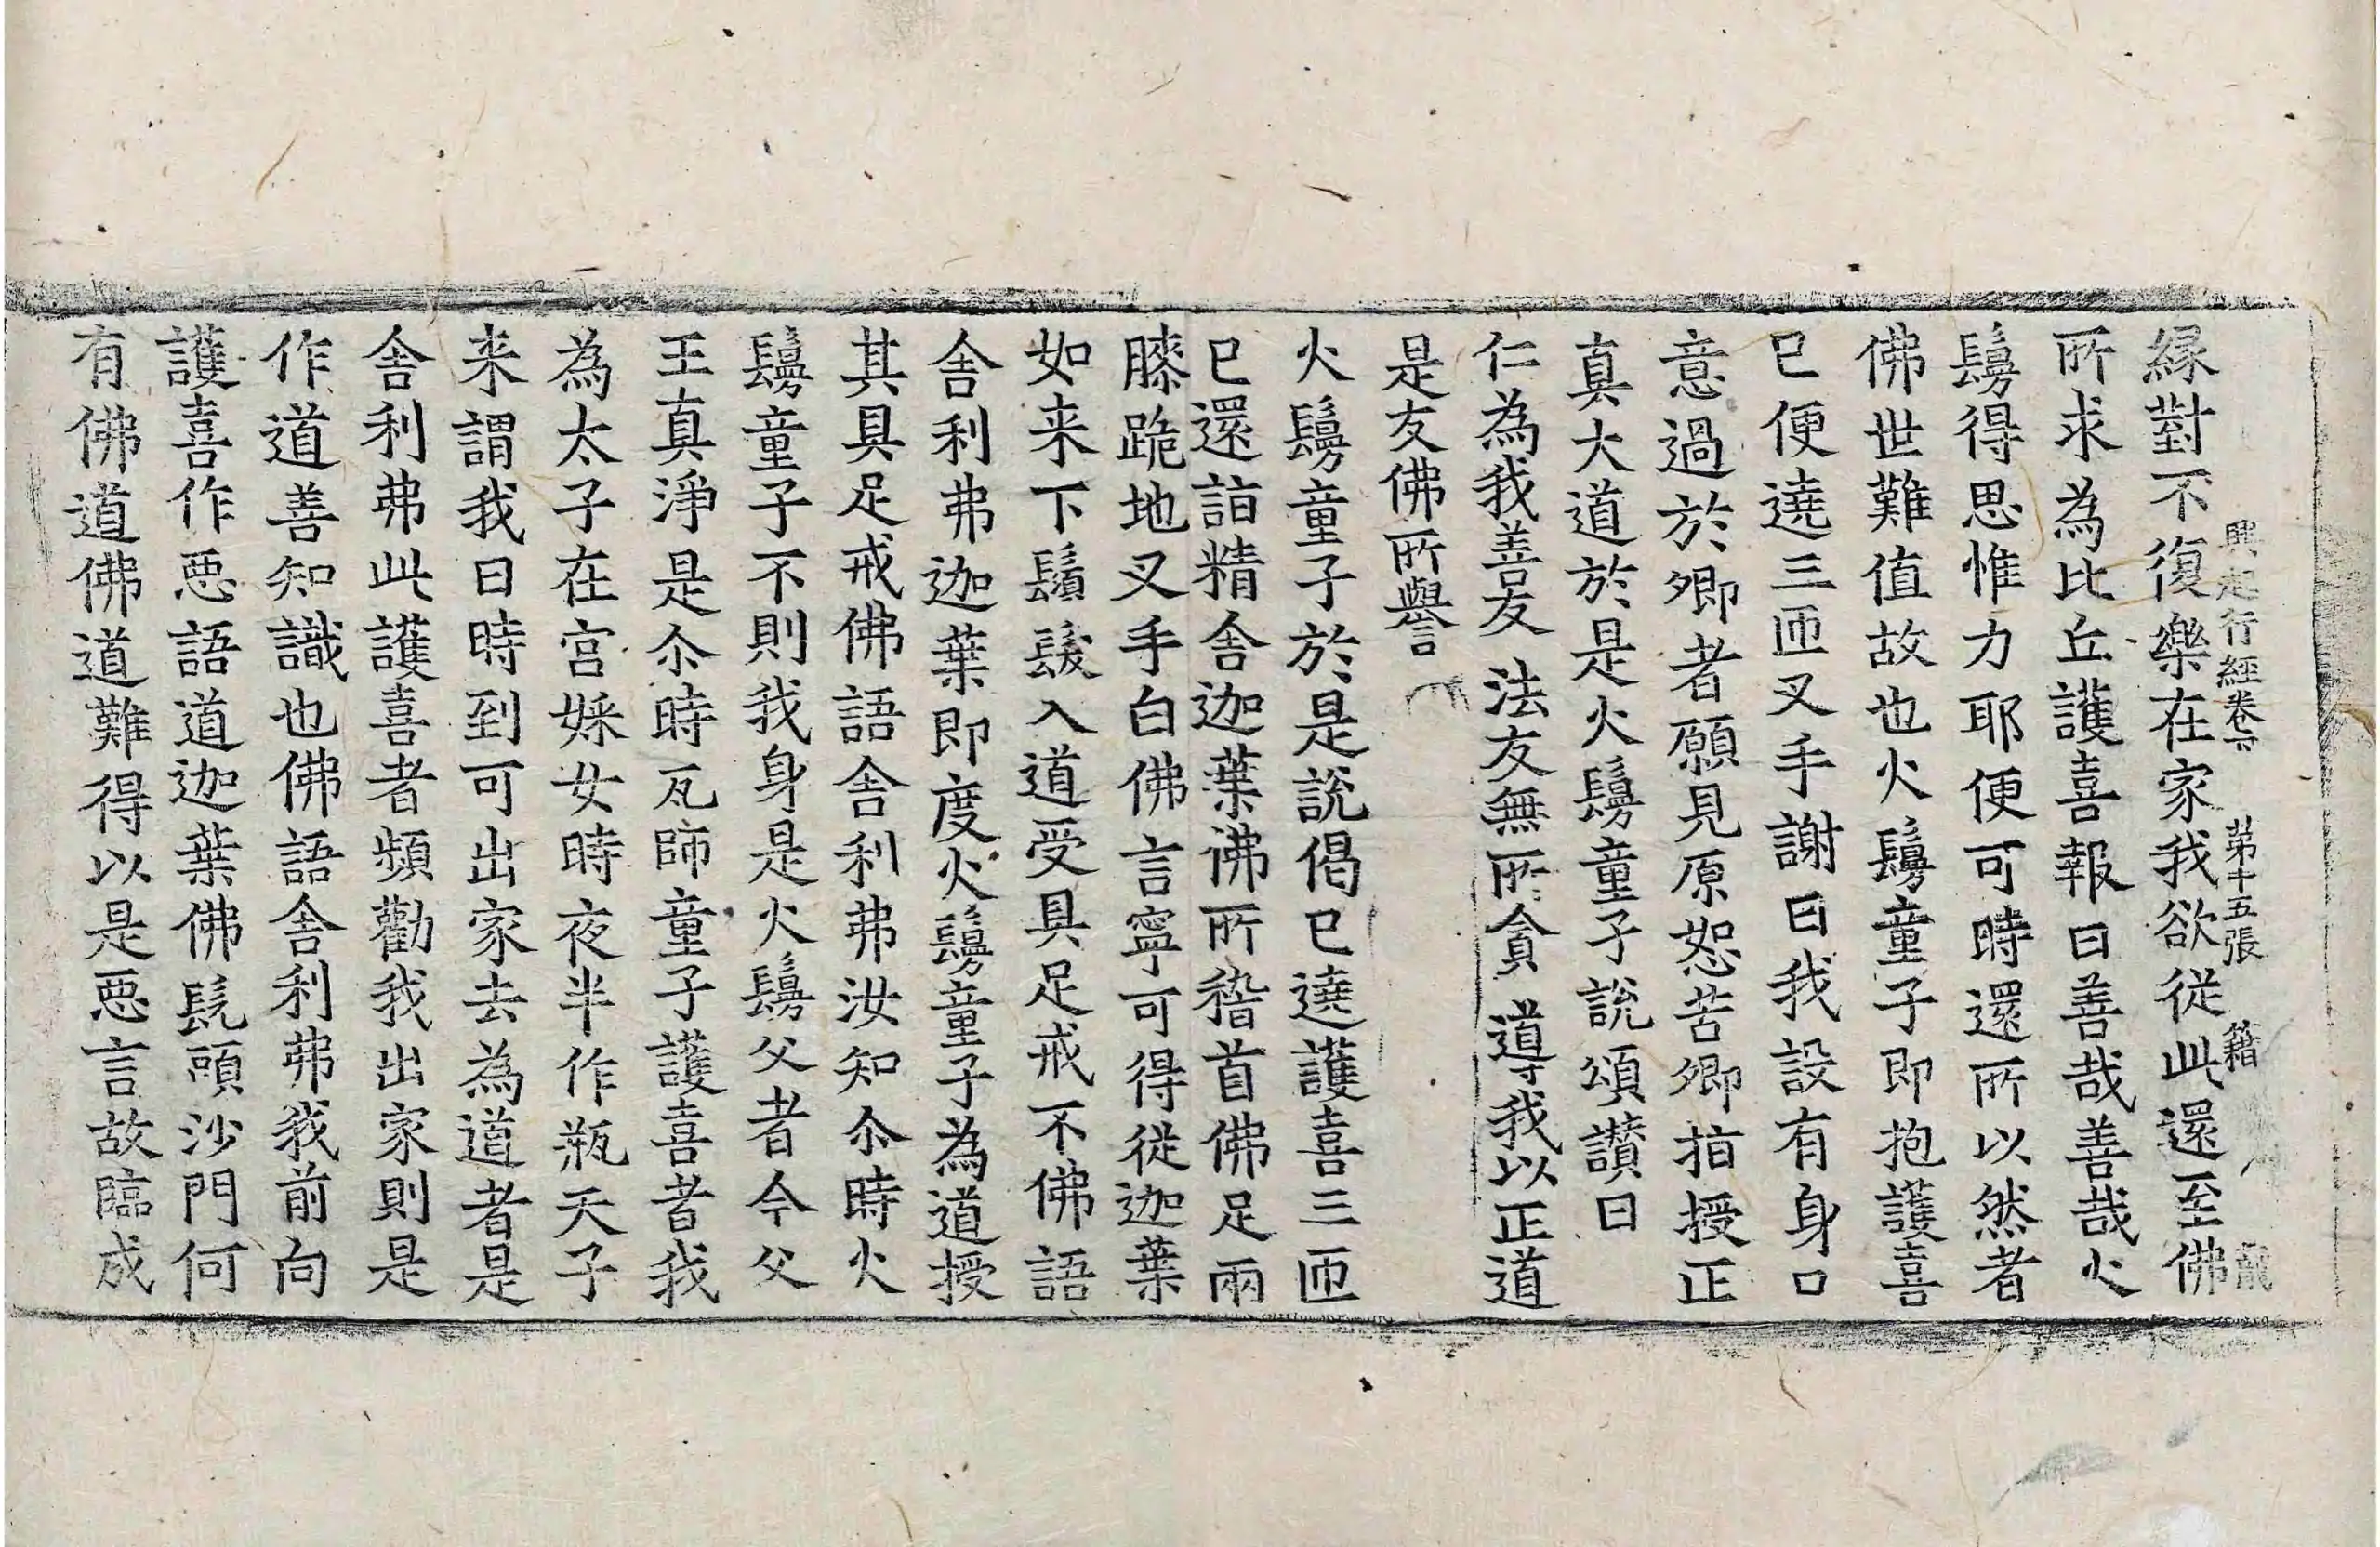 緣對不復樂在家我欲從此還至佛
興起行經卷下 第十五張 籍
所求為比丘護喜報曰善哉善哉火
鬘得思惟力耶便可時還所以然者
佛世難值故也火鬘童子即抱護喜
已便遶三匝叉手謝曰我設有身口
意過於卿者願見原恕苦卿指授正
真大道於是火鬘童子說頌讃曰
仁為我善友 法友無所貪 導我以正道
是友佛所譽
火鬘童子於是說偈已遶護喜三匝
已還詣精舍迦葉佛所稽首佛足兩
膝跪地叉手白佛言寧可得從迦葉
如来下鬚髮入道受具足戒不佛語
舍利弗迦葉即度火鬘童子為道授
其具足戒佛語舍利弗汝知尒時火
鬘童子不則我身是火鬘父者今父
王真淨是尒時瓦師童子護喜者我
為太子在宫婇女時夜半作瓶天子
来謂我曰時到可出家去為道者是
舍利弗此護喜者頻勸我出家則是
作道善知識也佛語舍利弗我前向
護喜作惡語道迦葉佛髡頭沙門何
有佛道佛道難得以是惡言故臨成